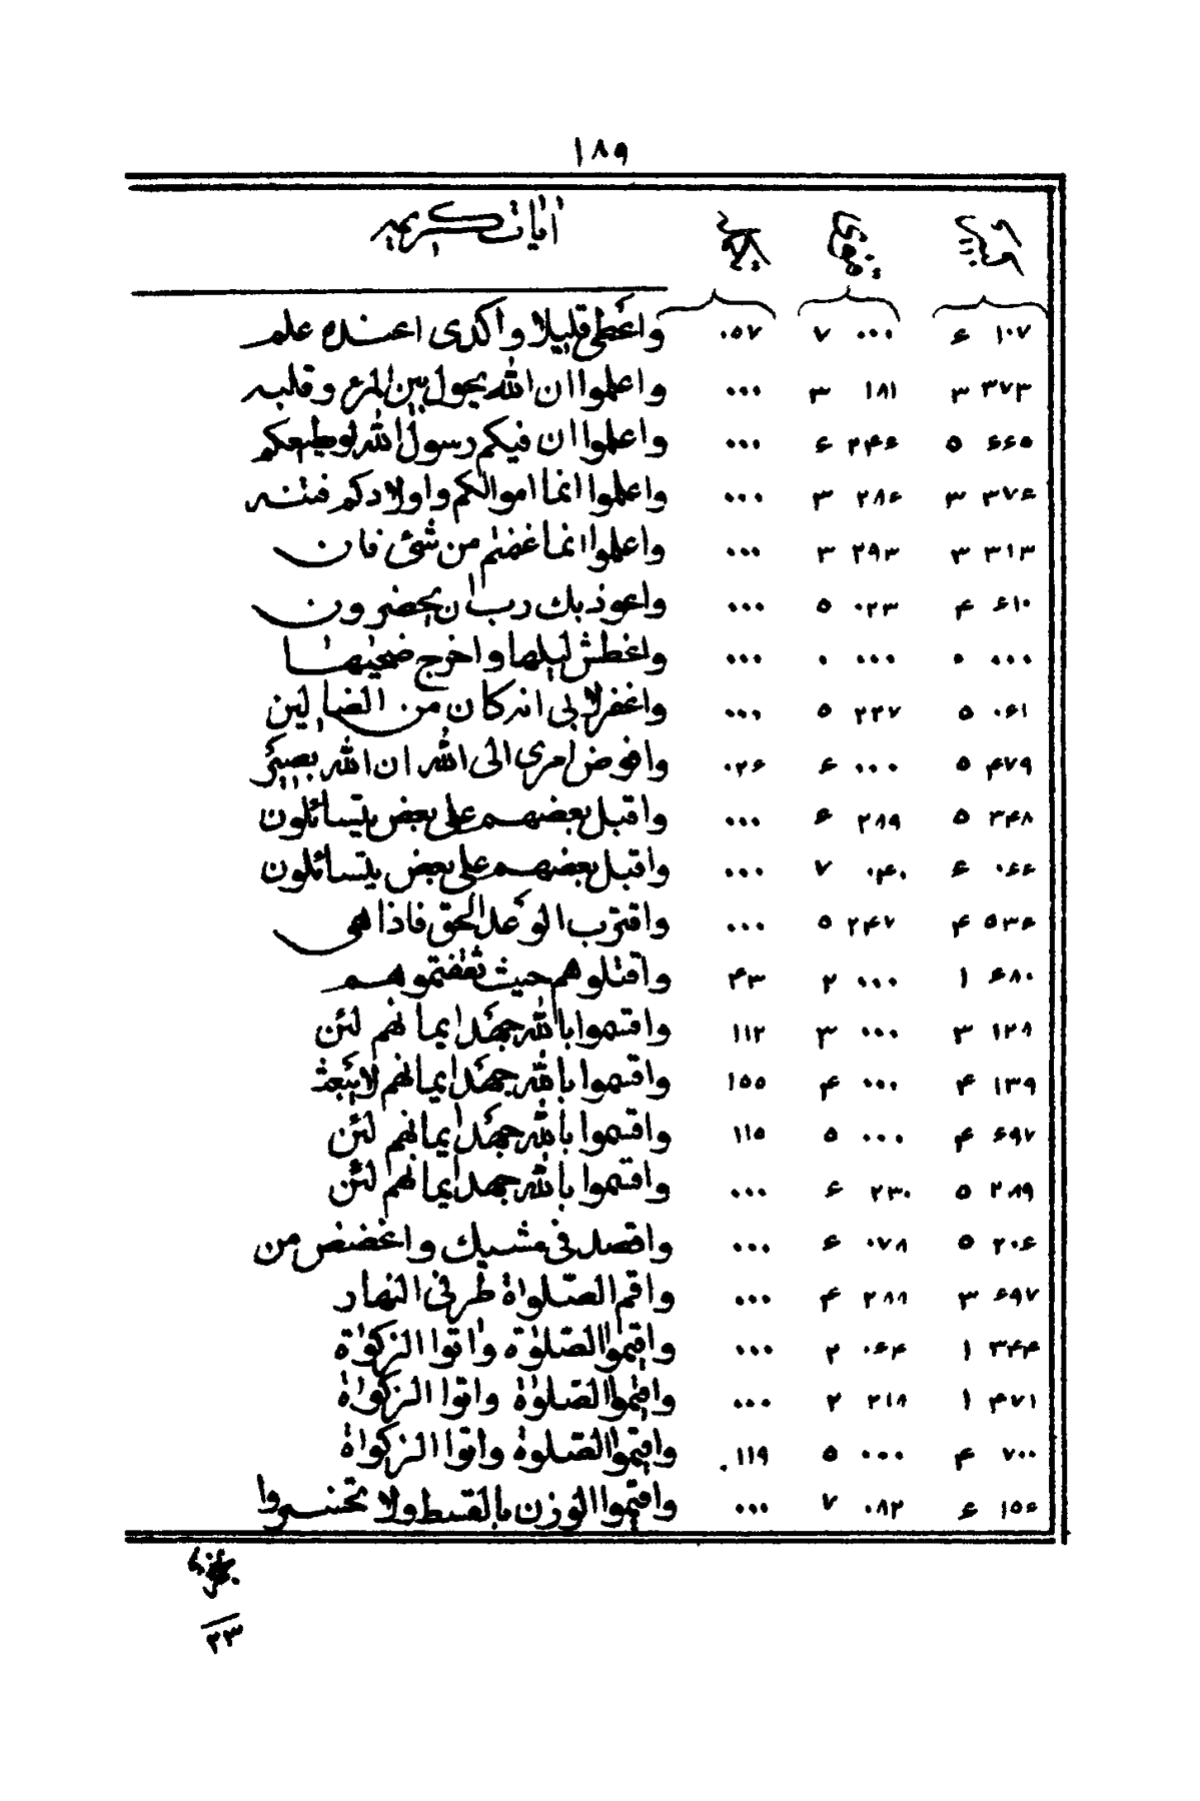 ١٨٩
اٰيات كريمه
١٠٧ ۶ ٠٠٠ ٧ ٠۵٧ واعطى قليلا واكدى اعنده علم
٣٧٣ ٣ ١٨١ ٣ ٠٠٠ واعلموا ان الله يحول بين المرء وقلبه
۶۶۵ ۵ ٢۴۶ ۶ ٠٠٠ واعلموا ان فيكم رسول الله لو يطيعكم
٣٧۶ ٣ ٢٨۶ ٣ ٠٠٠ واعلموا انما اموالكم واولادكم فتنه
٣١٣ ٣ ٢٩٣ ٣ ٠٠٠ واعلموا انما غنمتم من شئ فان
۶١٠ ۴ ٠٢٣ ۵ ٠٠٠ واعوذ بك رب ان يحضرون
٠٠٠ ٠ ٠٠٠ ٠ ٠٠٠ واغطش ليلها واخرج ضحيٰها
٠۶١ ۵ ٢٢٧ ۵ ٠٠٠ واغفر لابى انه كان من الضالين
۴٧٩ ۵ ٠٠٠ ۶ ٠٢۶ وافوض امرى الى الله ان الله بصير
٣۴٨ ۵ ٢٨٩ ۶ ٠٠٠ واقبل بعضهم على بعض يتسائلون
٠۶۶ ۶ ٠۴٠ ٧ ٠٠٠ واقبل بعضهم على بعض يتسائلون
۵٣۶ ۴ ٢۴٧ ۵ ٠٠٠ واقترب الوعد الحق فاذا هى
۶٨٠ ١ ٠٠٠ ٢ ۴٣ واقتلوهم حيث ثقفتموهم
١٢٨ ٣ ٠٠٠ ٣ ١١٢ واقسموا بالله جهد ايمانهم لئن
١٣٩ ۴ ٠٠٠ ۴ ١۵۵ واقسموا بالله جهد ايمانهم لا يبعث
۶٩٧ ۴ ٠٠٠ ۵ ١١۵ واقسموا بالله جهد ايمانهم لئن
٢٨٩ ۵ ٢٣٠ ۶ ٠٠٠ واقسموا بالله جهد ايمانهم لئن
٢٠۶ ۵ ٠٧٨ ۶ ٠٠٠ واقصد فى مشيك واغضض من
۶٩٧ ٣ ٢٨٨ ۴ ٠٠٠ واقم الصّلواة طرفى النهار
٣۴۴ ١ ٠۶۴ ٢ ٠٠٠ واقيموا الصّلوٰة واٰتوا الزكوٰاة
۴٧١ ١ ٢١٨ ٢ ٠٠٠ واقيموا الصّلوٰاة واتوا الزكوٰاة
٧٠٠ ۴ ٠٠٠ ۵ ١١٩ واقيموا الصّلوة واتوا الزكواة
١۵۶ ۶ ٠٨٢ ٧ ٠٠٠ واقيموا الوزن بالقسط ولا تخسروا
٢٣